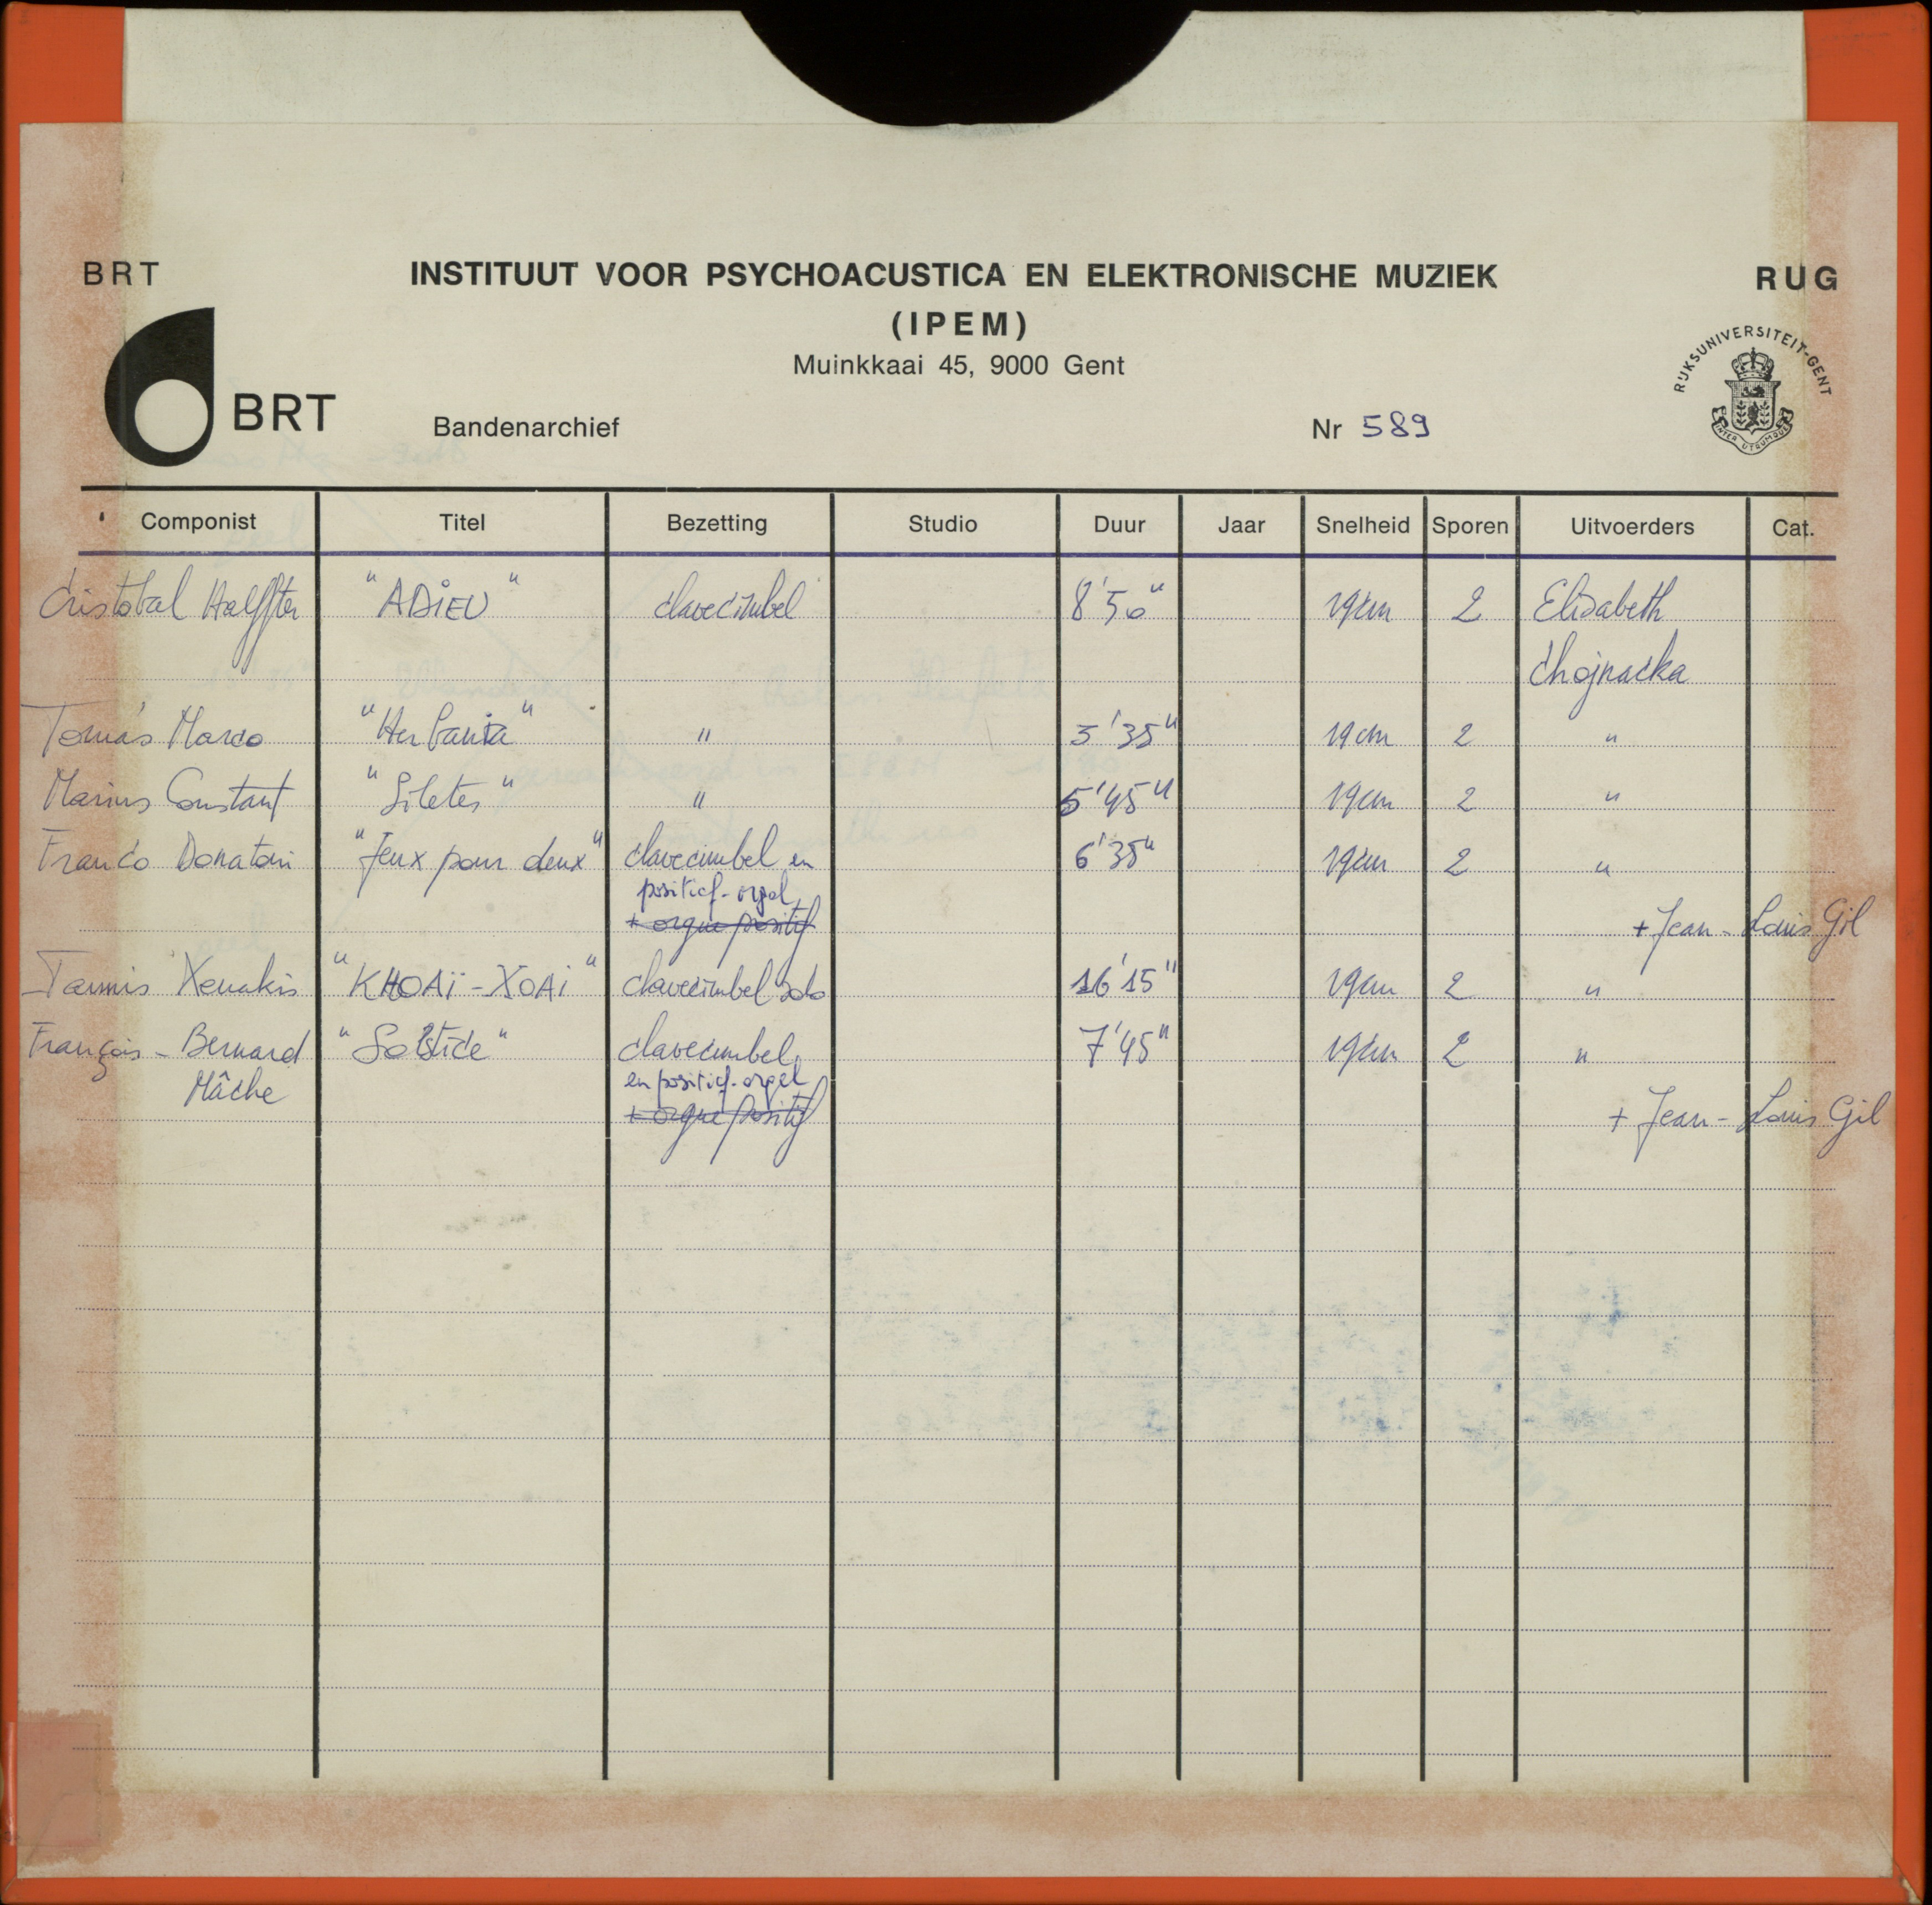 BRT INSTITUUT VOOR PSYCHOACUSTICA EN ELEKTRONISCHE MUZIEK RUG
(IPEM)
Muinkkaai 45, 9000 Gent
RIJKSUNIVERSITEIT-GENT
INTER UTRUMQUE
BRT Bandenarchief Nr 589
Componist Titel Bezetting Studio Duur Jaar Snelheid Sporen Uitvoerders Cat.
Cristobal Halffter "ADiEU" clavecimbel 8'50" 19cm 2 Elisabeth
Chojnacka
Tomás Marco "Herbania" " 5'35" 19cm 2 "
Marius Constant "Siletes" " 5'45" 19cm 2 "
Franco Donatoni "Jeux pour deux" clavecimbel en 6'35" 19cm 2 "
positief-orgel
+ orgue positif + Jean-Louis Gil
Iannis Xenakis "KHOAï-XOAi" clavecimbel solo 16'15" 19cm 2 "
François-Bernard "Solstice" clavecimbel 7'45" 19cm 2 "
Mâche en positief-orgel
+ orgue positif + Jean-Louis Gil